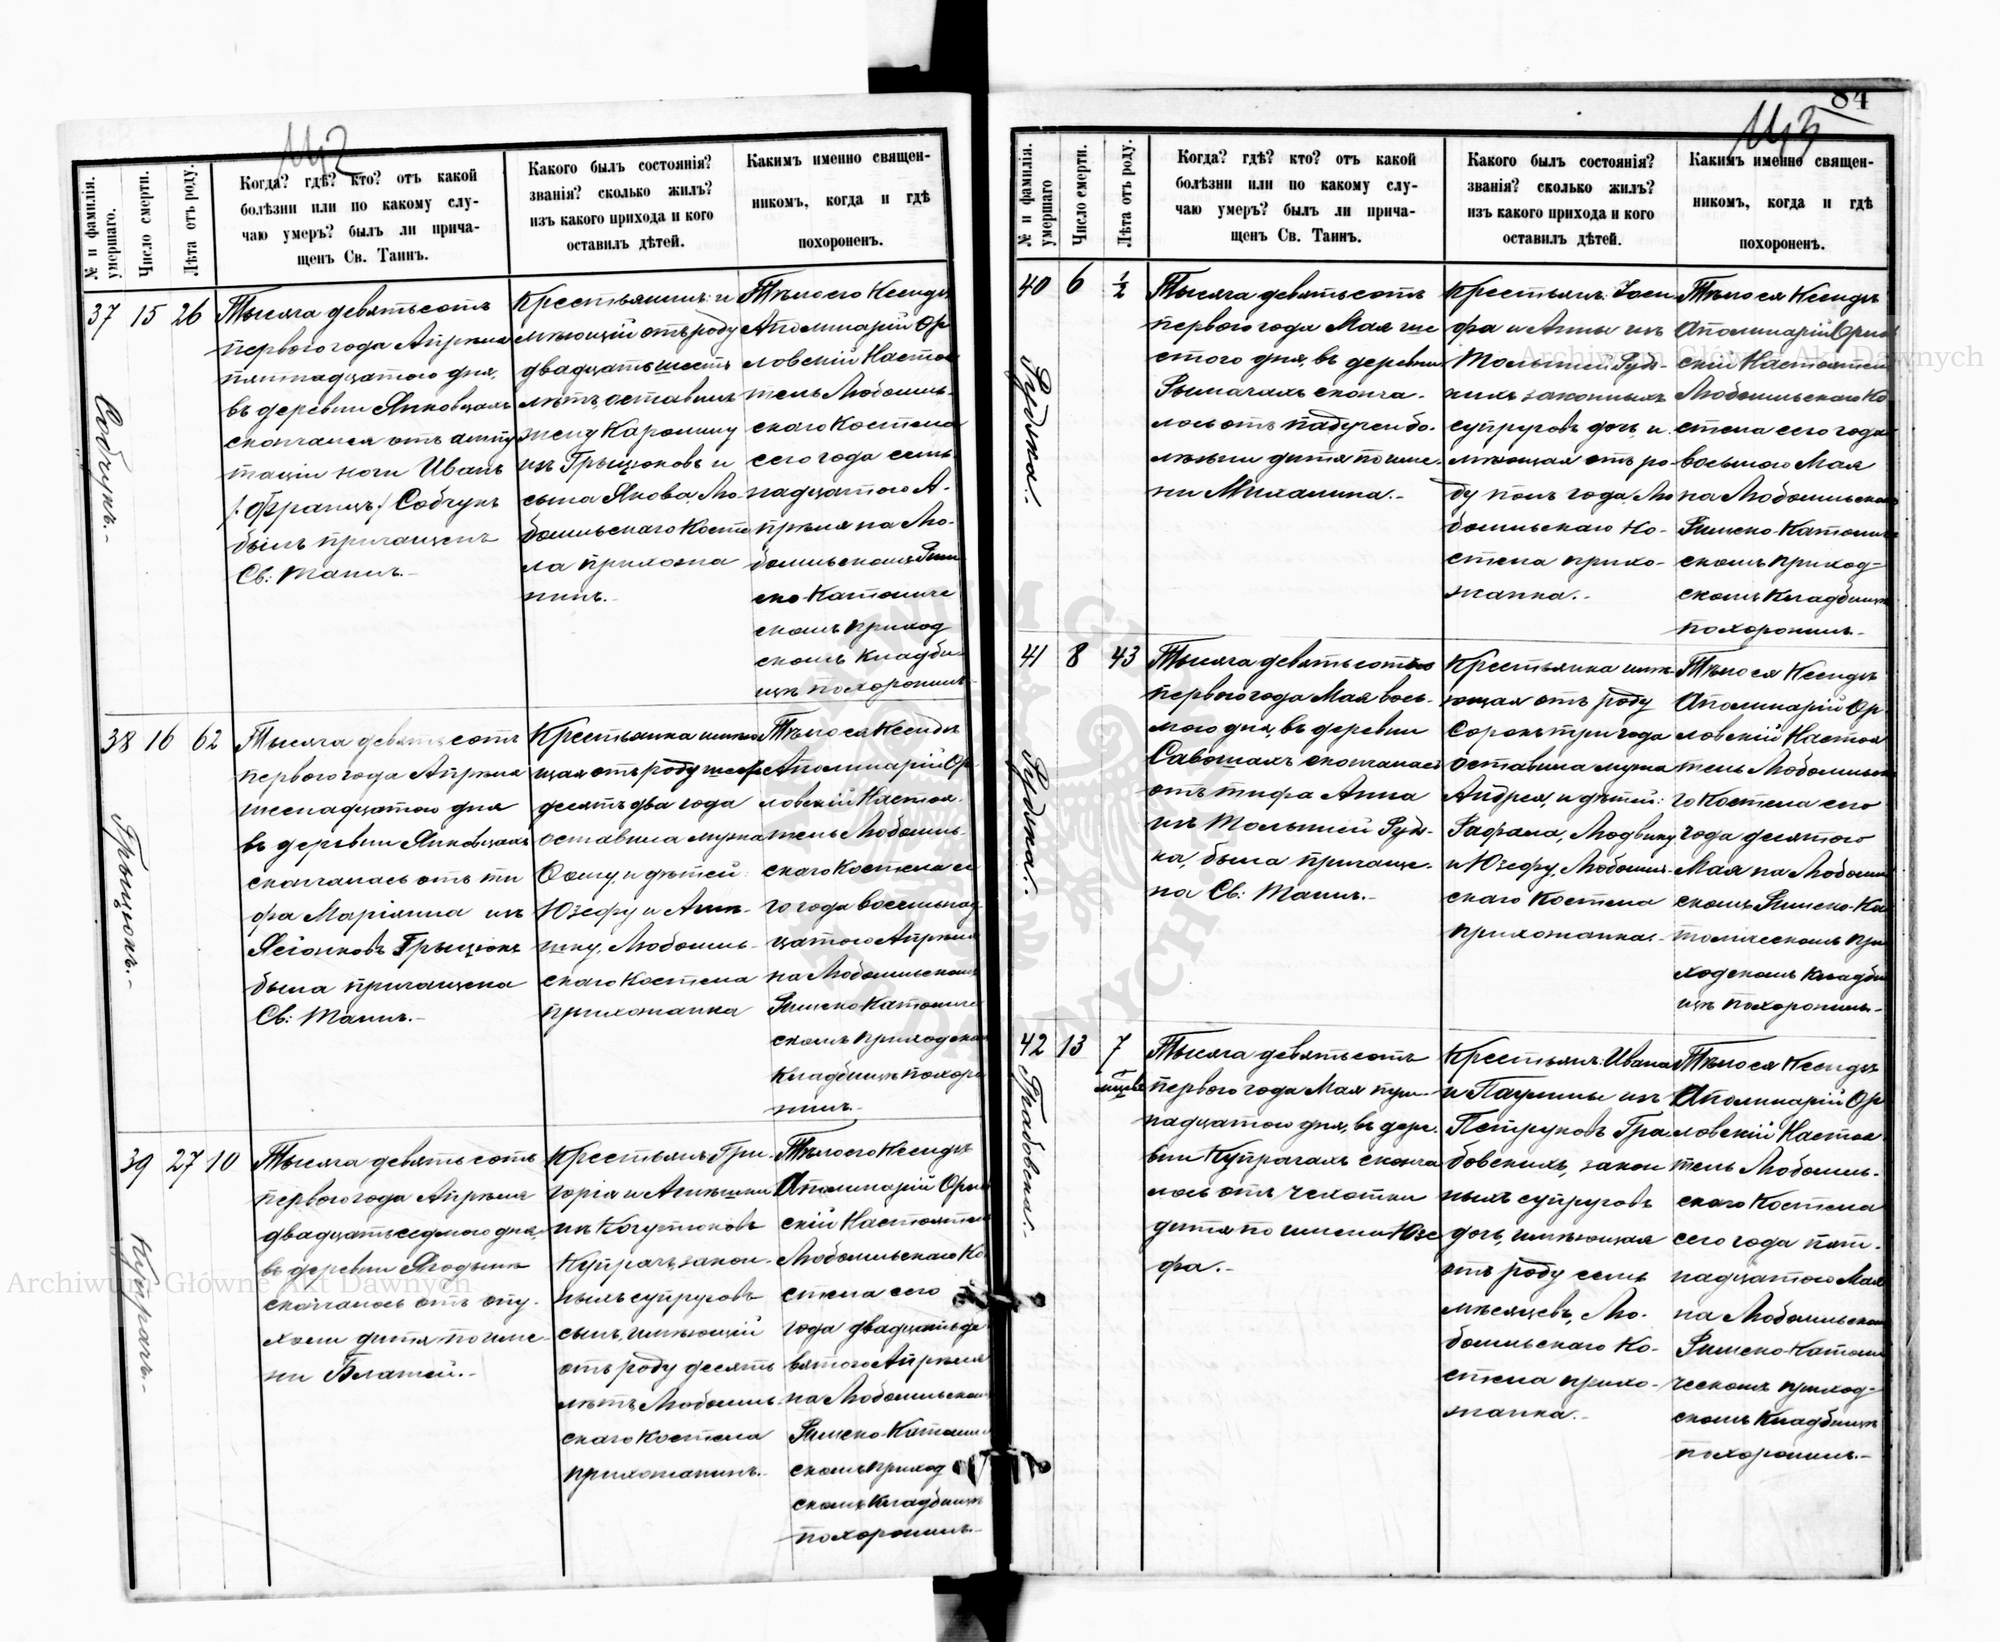 142
№ и фамилія умершаго.
Число смерти.
Лѣта отъ роду.
Когда? гдѣ? кто? отъ какой
болѣзни или по какому слу-
чаю умеръ? былъ ли прича-
щенъ Св. Таинъ.
Какого былъ состоянія?
званія? сколько жилъ?
изъ какого прихода и кого
оставилъ дѣтей.
Какимъ именно священ-
никомъ, когда и гдѣ
похороненъ.
37 15 26
Собчукъ.-
Тысяча девятьсотъ
перваго года Апрѣля
пятнадцатого дня,
въ деревни Янковцахъ
скончался отъ ампу
таціи ноги Иванъ
/:Францъ:/ Собчукъ
былъ причащенъ
Св: Таинъ.-
Крестьянинъ: и
мѣющій отъ роду
двадцать шесть
лѣтъ, оставилъ
жену Каролину
изъ Грыцюковъ и
сына Якова Лю-
бомльскаго Косте
ла прихожа
нинъ.-
Тѣло его Ксендзъ
Аполинарій Ор
ловскій Настоя
тель Любомль-
скаго Костела
сего года семь-
надцатого А-
прѣля на Лю-
бомльскомъ Рим
ско-Католиче
скомъ приход
скомъ кладби-
щѣ похоронилъ.-
38 16 62
Грыцюкъ.-
Тысяча девятьсотъ
перваго года Апрѣля
шеснадцатого дня
въ деревни Янковцахъ
скончалась отъ ти
фа Маріянна изъ
Ясіонковъ Грыцюкъ
была причащена
Св: Таинъ.-
Крестьянка имѣю
щая отъ роду шесть
десятъ два года
оставила мужа
Ѳому, и дѣтей:
Юзефу и Агнѣ-
шку, Любомль-
скаго Костела
прихожанка
Тѣло ея Ксендзъ
Аполинарій Ор
ловскій Настоя-
тель Любомль-
скаго Костела се
го года восемьнад
цатого Апрѣля
на Любомльскомъ
Римско Католиче
скомъ приходском
кладбищѣ похоро
нилъ.-
39 27 10
Купрачъ.-
Тысяча девятьсотъ
перваго года Апрѣля
двадцать седмого дня,
въ деревни Ягодынѣ
скончалось отъ опу-
холи дитя по име-
ни Блажей.-
Крестьянъ Гри-
горія и Агнѣшки
изъ Когутюковъ
Купрачъ, закон-
ныхъ супруговъ
сынъ, имѣющій
отъ роду десять
лѣтъ Любомль-
скаго Костела
прихожанинъ.-
Тѣло его Ксендзъ
Аполинарій Орлов
скій Настоятель
Любомльскаго Ко
стела сего
года двадцать де
вятого Апрѣля
на Любомльском
Римско-Католи
скомъ приход
скомъ кладбищѣ
похоронилъ.-
84
143
№ и фамилія умершаго
Число смерти.
Лѣта отъ роду.
Когда? гдѣ? кто? отъ какой
болѣзни или по какому слу-
чаю умеръ? былъ ли прича-
щенъ Св. Таинъ.
Какого былъ состоянія?
званія? сколько жилъ?
изъ какого прихода и кого
оставилъ дѣтей.
Какимъ именно священ-
никомъ, когда и гдѣ
похороненъ.
40 6 ½
Рудзка.-
Тысяча девятьсотъ
перваго года Мая ше
стого дня, въ деревни
Рымачахъ сконча-
лось отъ падучей бо-
лѣзни дитя по име-
ни Михалина.-
Крестьянъ: Іоси
фа и Анны изъ
Тольшей Рудз-
кихъ законныхъ
супруговъ дочь, и-
мѣющая отъ ро-
ду полъ года, Лю
бомльскаго Ко-
стела прихо-
жанка.-
Тѣло ея Ксендзъ
Аполинарій Орлов
скій Настоятель
Любомльскаго Ко
стела сего года
восьмого Мая
на Любомльском
Римско-Католи
скомъ приход=
скомъ кладбищѣ
похоронилъ.-
41 8 43
Рудзка.-
Тысяча девятьсотъ
перваго года Мая вось-
мого дня, въ деревни
Савошахъ скончалась
отъ тифа Анна
изъ Тольшей Рудз-
ка, была причаще-
на Св: Таинъ.-
Крестьянка имѣ
ющая отъ роду
Сорокъ три года
оставила мужа
Андрея, и дѣтей:
Рафала, Людвику
и Юзефу, Любомль-
скаго Костела
прихожанка.-
Тѣло ея Ксендзъ
Аполинарій Ор-
ловскій Настоя
тель Любомльска
го Костела сего
года десятого
Мая на Любомль
скомъ Римско-Ка
толическомъ при
ходскомъ кладби
щѣ похоронилъ.-
42 13 7 мѣсяц
Грабовска.-
Тысяча девятьсотъ
перваго года Мая три-
надцатого дня, въ дере-
вни Купрачахъ сконча
лось отъ чехотки
дитя по имени Юзе
фа.-
Крестьянъ: Ивана
и Паулины изъ
Петруковъ Гра
бовскихъ, закон
ныхъ супруговъ
дочь, имѣющая
отъ роду семь
мѣсяцевъ, Лю-
бомльскаго Ко-
стела прихо-
жанка.-
Тѣло ея Ксендзъ
Аполинарій Ор
ловскій Настоя
тель Любомль-
скаго Костела
сего года пят-
надцатого Мая
на Любомльском
Римско-Католи
ческомъ приход=
скомъ кладбищѣ
похоронилъ.-
Archiwum Główne Akt Dawnych
Archiwum Główne Akt Dawnych